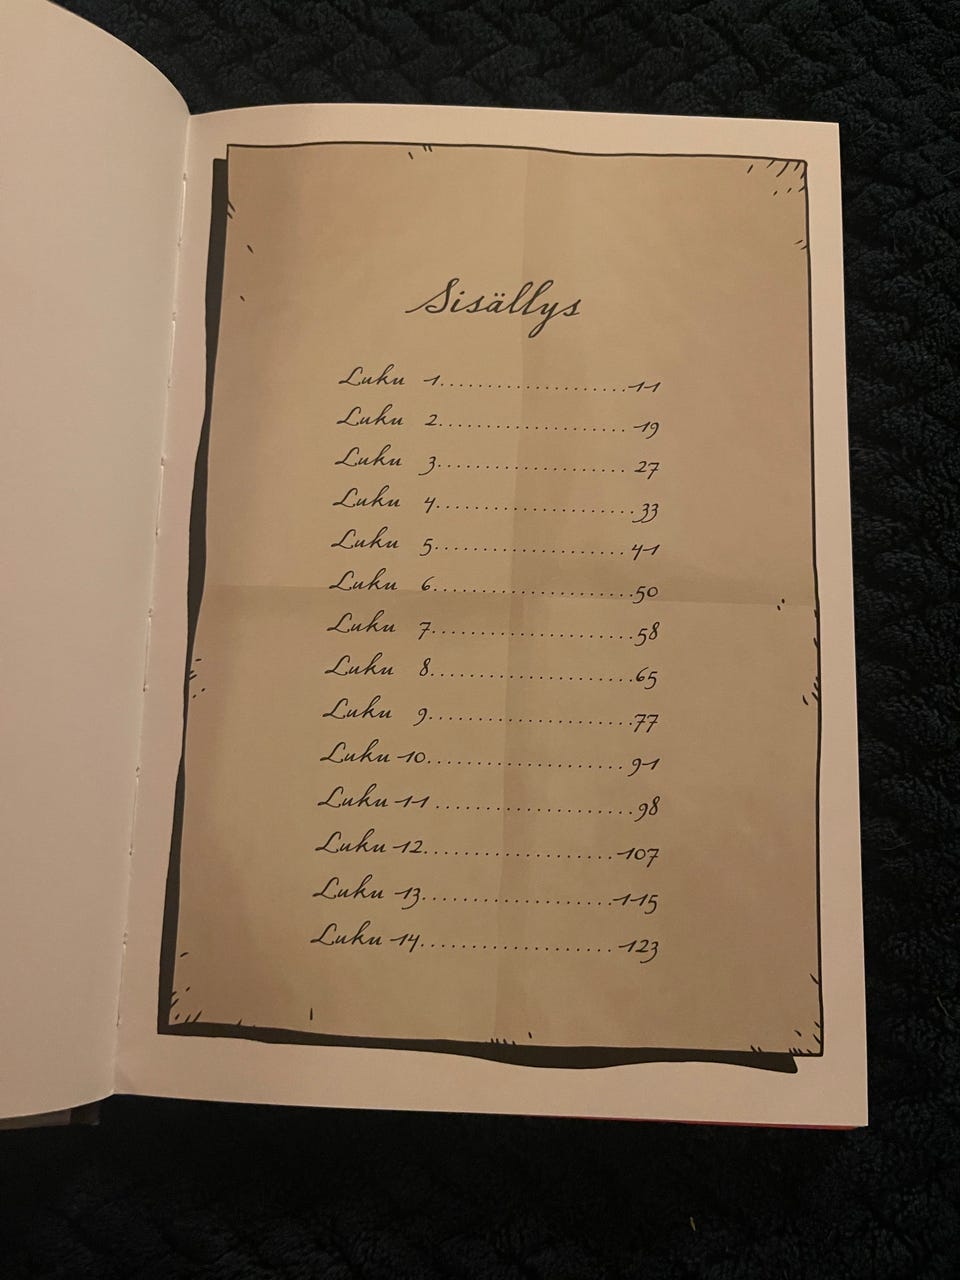 Sisällys
Luku 1....................11
Luku 2....................19
Luku 3....................27
Luku 4....................33
Luku 5....................41
Luku 6....................50
Luku 7....................58
Luku 8....................65
Luku 9....................77
Luku 10....................91
Luku 11....................98
Luku 12...................107
Luku 13...................115
Luku 14...................123